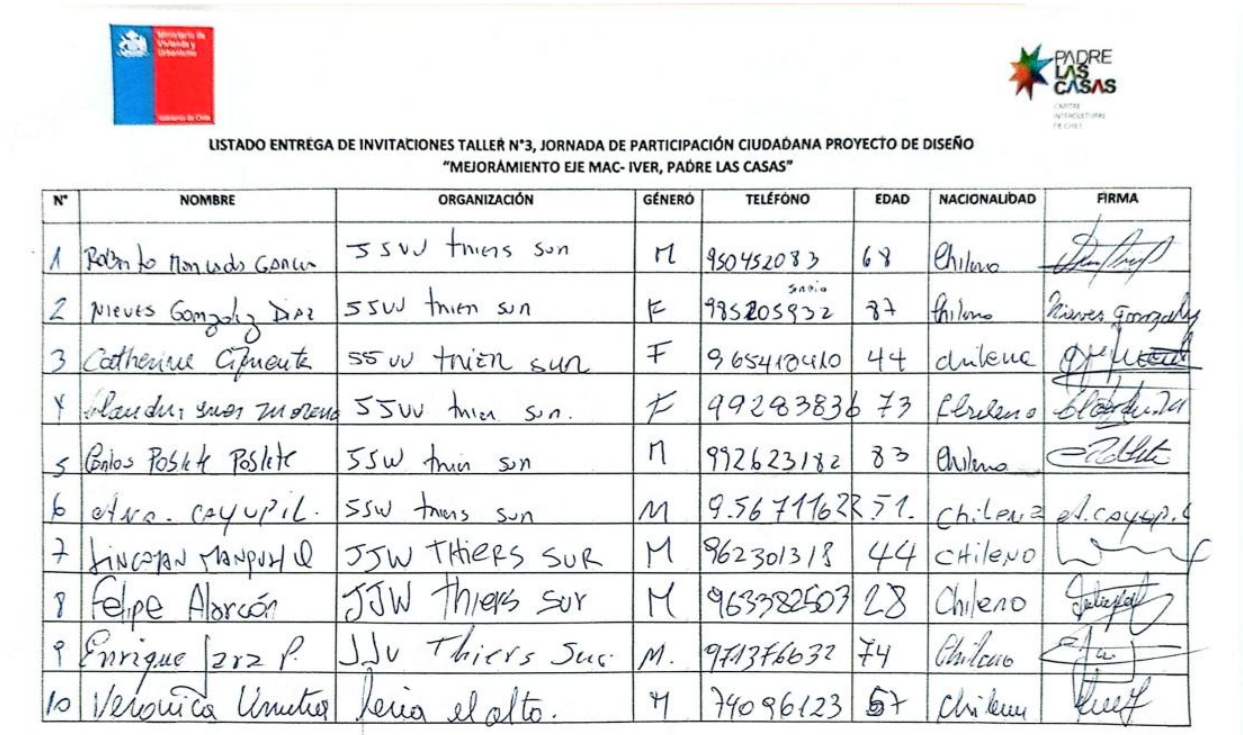 Ministerio de
Vivienda y
Urbanismo
Gobierno de Chile
PADRE
LAS
CASAS
CAPITAL
INTERCULTURAL
DE CHILE
LISTADO ENTREGA DE INVITACIONES TALLER N°3, JORNADA DE PARTICIPACIÓN CIUDADANA PROYECTO DE DISEÑO
"MEJORAMIENTO EJE MAC- IVER, PADRE LAS CASAS"
N° NOMBRE ORGANIZACIÓN GÉNERO TELÉFONO EDAD NACIONALIDAD FIRMA
1 JJVV thiers sur M 950452083 68 Chileno
2 Nieves Gonzalez Diaz JJVV thier sur F 985205932 87 Chileno Nieves Gonzalez
3 Catherine Cifuente JJVV thier sur F 965410410 44 chilena
4 Moreno JJVV thier sur. F 99283836 73 Chileno
5 Carlos Poblete Poblete JJVV thier sur M 992623182 83 Chileno
6 CAYUPIL. JJVV thiers sur M 9.5671162 51. Chilena
7 JJVV THIERS SUR M 962301318 44 CHILENO
8 Felipe Alarcón JJVV Thiers Sur M 963382503 28 Chileno
9 Enrique Jara P. JJV Thiers Sur. M. 971376632 74 Chileno
10 Veronica feria el alto. M 74096123 57 chilena